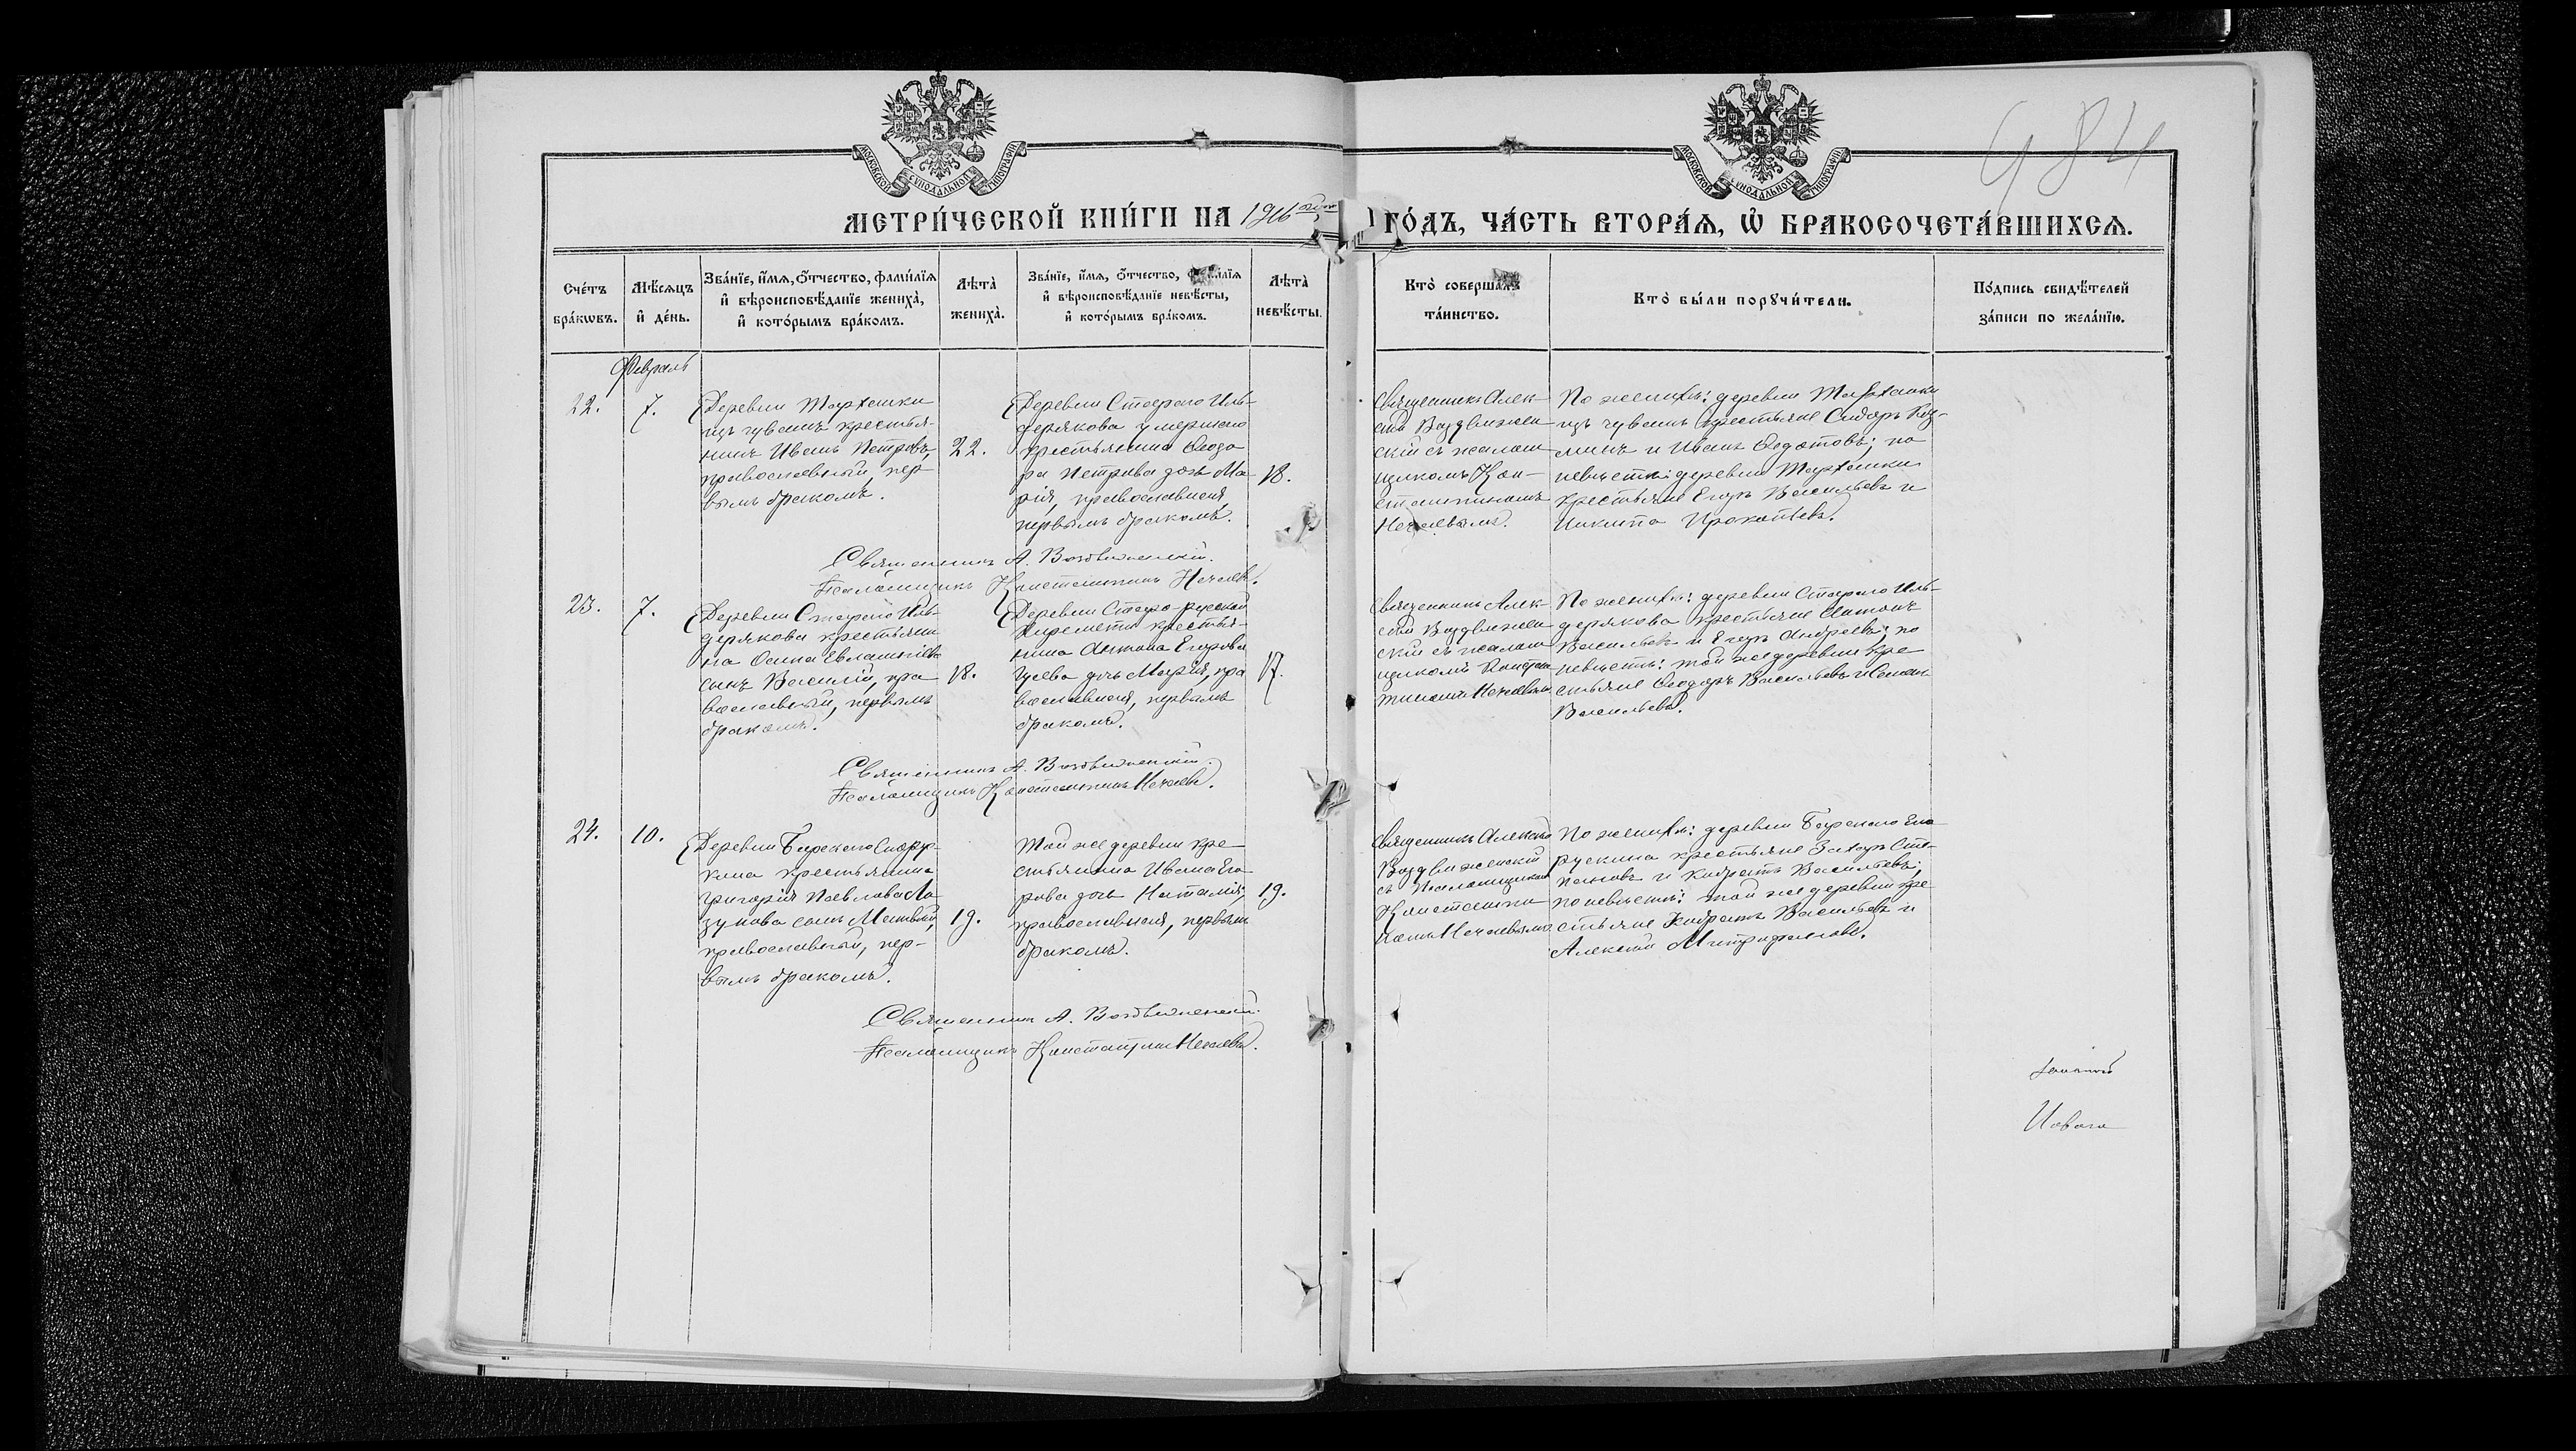 984
МОСКОВСКОЙ СУНОДАЛЬНОЙ ТИПОГРАФІИ
МОСКОВСКОЙ СУНОДАЛЬНОЙ ТИПОГРАФІИ
МЕТРИ́ЧЕСКОЙ КНИ́ГИ НА 1916 ГО́ДЪ, ЧА́СТЬ ВТОРА́Ѧ, Ѽ БРАКОСОЧЕТА́ВШИХСѦ.
Сче́тъ
бра́кѡвъ.
Мѣ́сѧцъ
и҆ де́нь.
Зва́нїе, и҆́мѧ, ѻ҆́тчество, фами́лїѧ
и҆ вѣроисповѣ́данїе жениха̀,
и҆ кото́рымъ бра́комъ.
Лѣта̀
жениха̀.
Зва́нїе, и҆́мѧ, ѻ҆́тчество, фами́лїѧ
и҆ вѣроисповѣ́данїе невѣ́сты,
и҆ кото́рымъ бра́комъ.
Лѣта̀
невѣ́сты.
Кто̀ соверша́лъ
та́инство.
Кто̀ бы́ли порꙋчи́тели.
По́дпись свидѣ́телей
за́писи по жела́нїю.
Февраль
22.
7.
Деревни
изъ чувашъ крестья-
нинъ Иванъ Петровъ,
православный, пер
вымъ бракомъ.
22.
Деревни Стараго Иль-
дерякова умершаго
крестьянина Ѳеодо
ра Петрова дочь Ма-
рія, православная,
первымъ бракомъ.
18.
Священникъ Алек-
сѣй Воздвижен
скій съ псалом
щикомъ Кон-
стантиномъ
Нечаевымъ.
По женихѣ: деревни
изъ чувашъ крестьяне Сидоръ Куз-
минъ и Иванъ Ѳедотовъ; по
невѣстѣ: деревни
крестьяне Егоръ Васильевъ и
Никита Прокопьевъ.
Священникъ А. Воздвиженскій.
Псаломщикъ Константинъ Нечаевъ.
23.
7.
Деревни Стараго Иль-
дерякова крестьяни
на Осипа
сынъ Василій, пра
вославный, первымъ
бракомъ.
18.
Деревни Старо-русской
Киремети крестья-
нина Антона Егорова
дочь Марія, пра
вославная, первымъ
бракомъ.
17.
Священникъ Алек-
сѣй Воздвижен
скій съ псалом
щикомъ Констан
тиномъ Нечаевымъ
По женихѣ: деревни Стараго Иль-
дерякова крестьяне Антонъ
Васильевъ и Егоръ Андреевъ; по
невѣстѣ: той же деревни кре
стьяне Ѳеодоръ Васильевъ и
Васильевъ.
Священникъ А. Воздвиженскій.
Псаломщикъ Константинъ Нечаевъ.
24.
10.
Деревни
крестьянина
Григорія Павлова Ла
зунова сынъ Матвѣй,
православный, пер-
вымъ бракомъ.
19.
Той же деревни кре
стьянина Ивана Его
рова дочь Наталія,
православная, первымъ
бракомъ.
19.
Священникъ Алексѣй
Воздвиженскій
съ псаломщикомъ
Константи
номъ Нечаевымъ
По женихѣ: деревни
крестьяне Захаръ Сте-
пановъ и Васильевъ;
по невѣстѣ: той же деревни кре
стьяне Васильевъ и
Алексѣй Митрофановъ.
Священникъ А. Воздвиженскій.
Псаломщикъ Константинъ Нечаевъ.